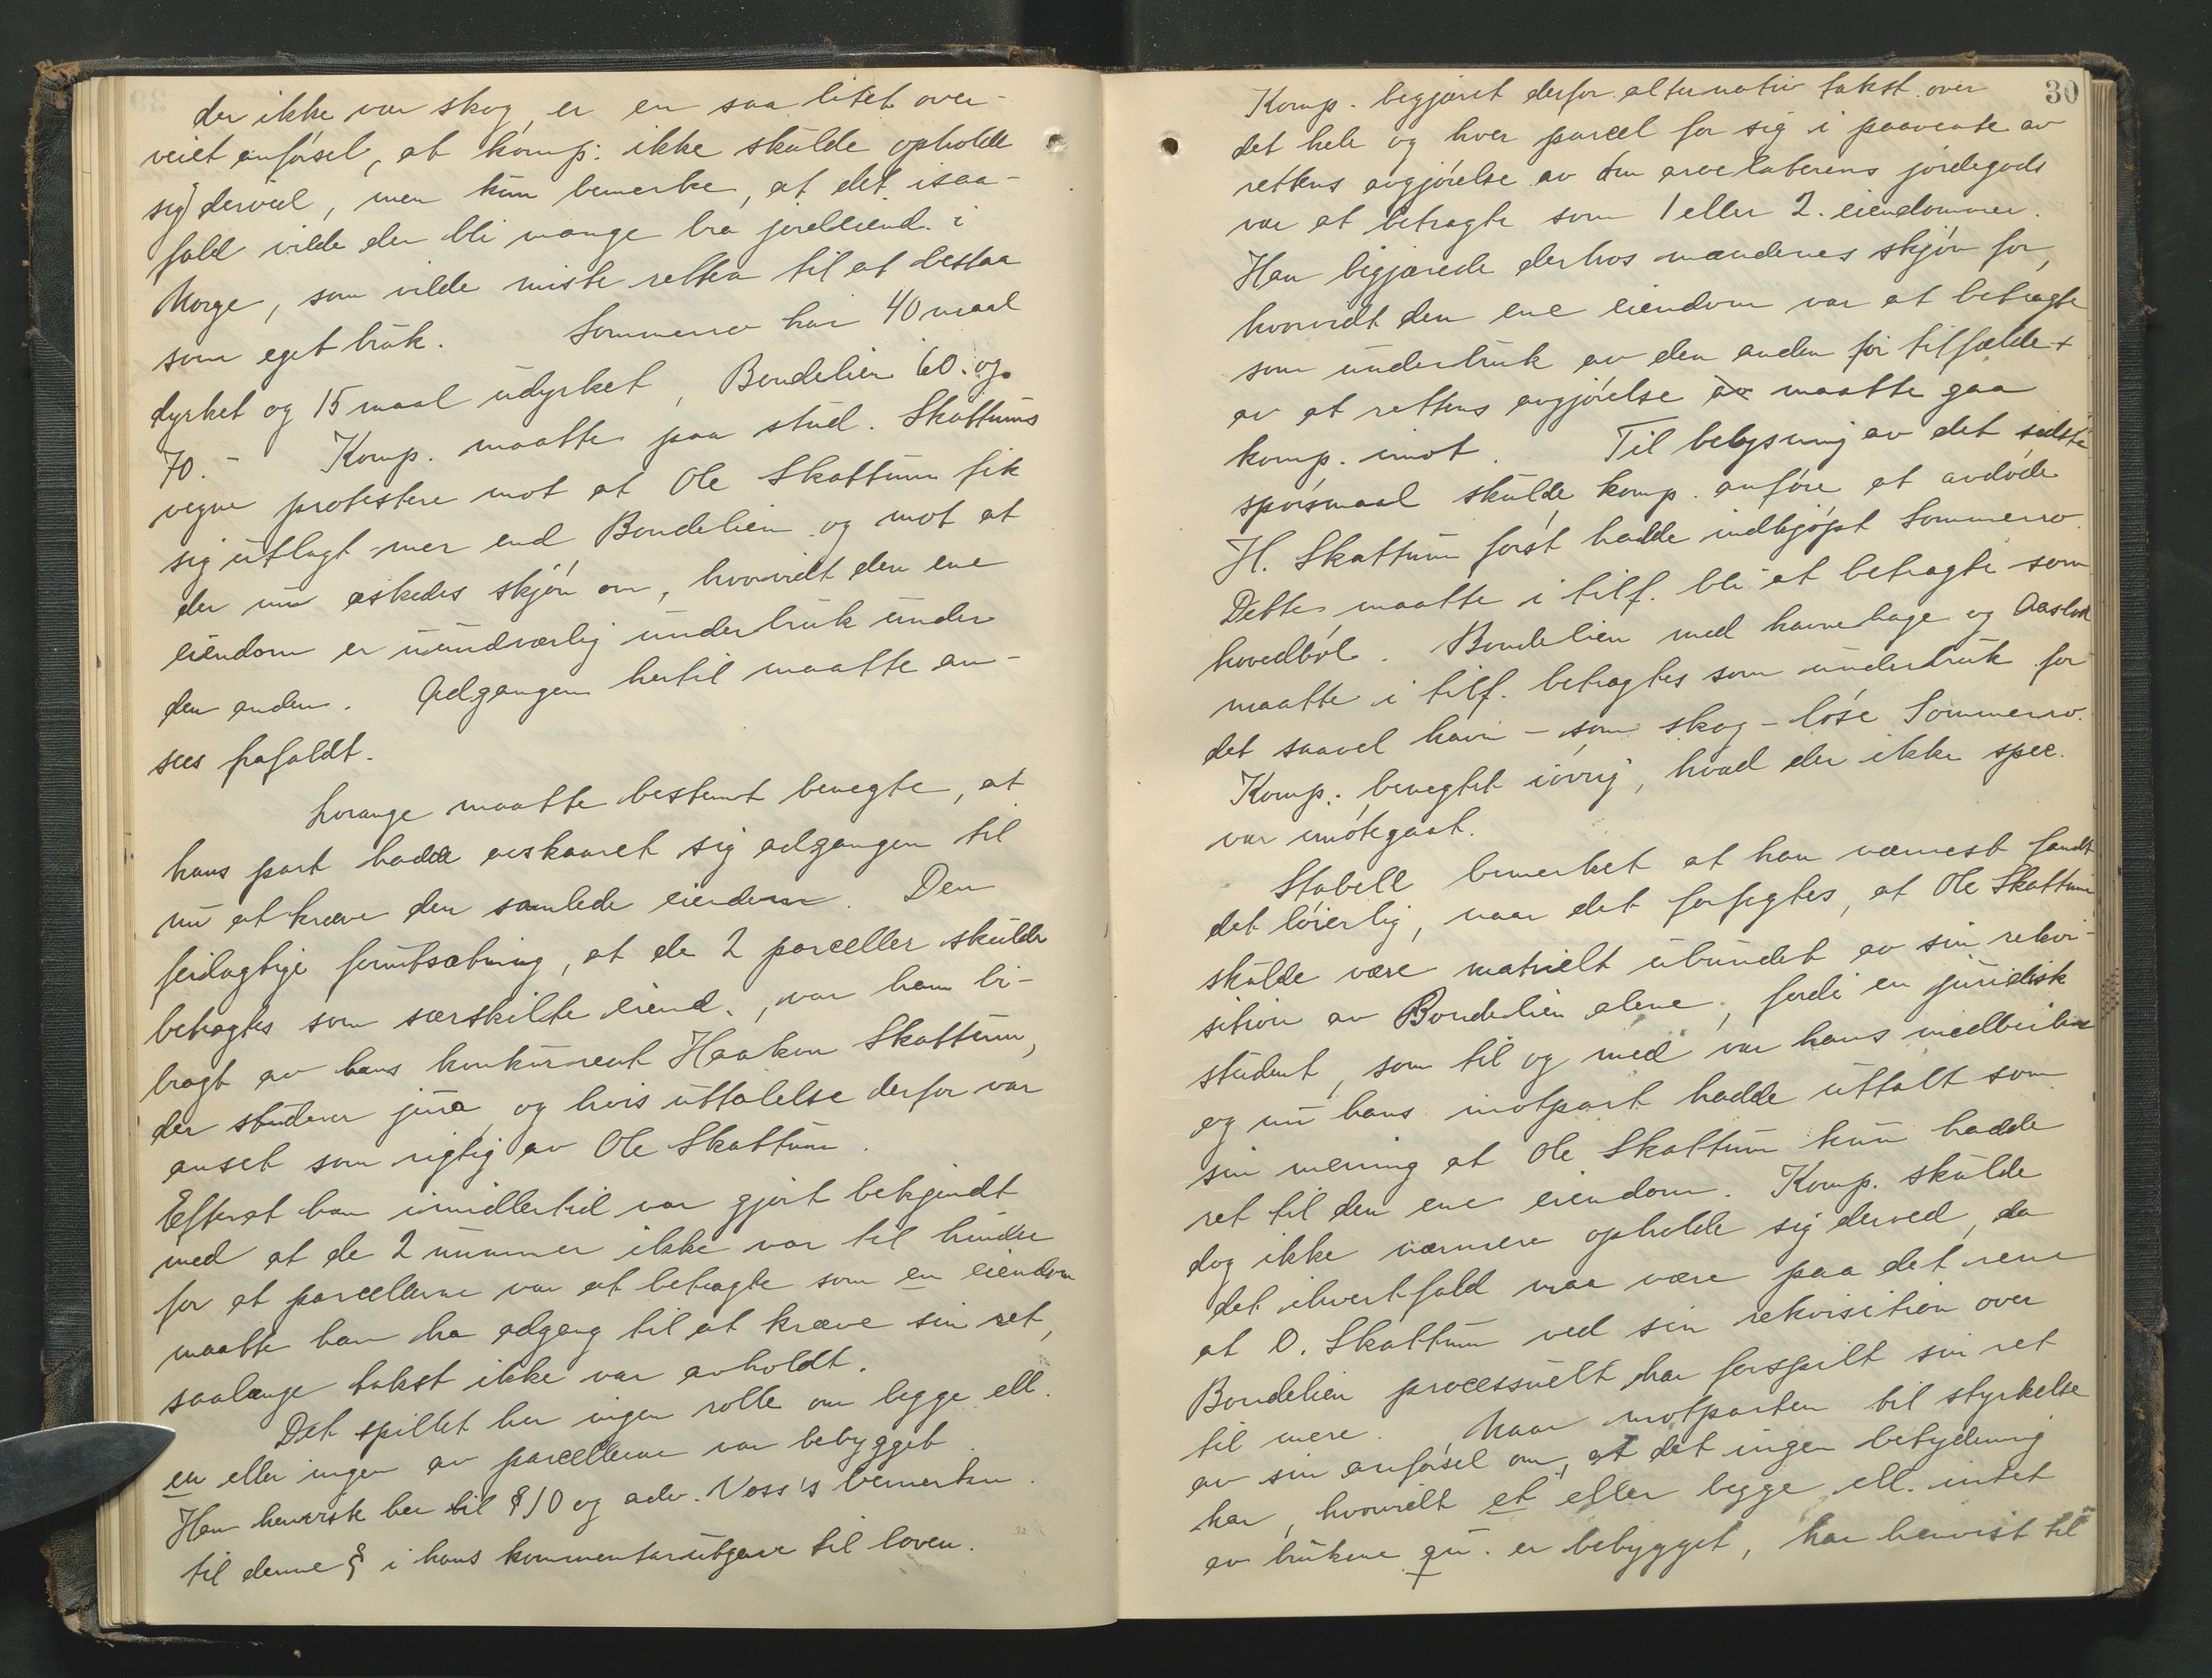 der ikke var skog, er en saa litet over-
veiet anførsel, at komp. ikke skulde opholde
sig derved, men kun bemerke, at det isaa-
fald vilde der bli mange bra jordeiend. i
Norge, som vilde miste retten til at bestaa
som eget bruk. Sommerro har 40 maal
dyrket og 15 maal udyrket, Bondelien 60 og
70.- Komp. maatte paa stud. Skattums
vegne protestere mot at Ole Skattum fik
sig utlagt mer end Bondelien og mot at
der nu æskedes skjøn om, hvorvidt den ene
eiendom er uundværlig underbruk under
den anden. Adgangen hertil maatte an-
sees frafaldt.
Lorange maatte bestemt benegte, at
hans part hadde avskaaret sig adgangen til
nu at kræve den samlede eiendom. Den
feilagtige forutsætning, at de 2 parceller skulde
betragtes som særskilte eiend., var ham bi-
bragt av hans konkurrent Haakon Skattum,
der studerer jura, og hvis uttalelse derfor var
anset som rigtig av Ole Skattum.
Efterat han imidlertid var gjort bekjendt
med at de 2 nummer ikke var til hinder
for at parcellerne var at betragte som en eiendom
maatte han ha adgang til at kræve sin ret,
saalænge takst ikke var avholdt.
Det spillet her ingen rolle om begge ell.
en eller ingen av parcellerne var bebygget.
Han henviste her til § 10 og adv. Voss's bemerkn.
til denne § i hans kommentarutgave til loven.
30
Komp. begjæret derfor alternativ takst over
det hele og hver parcel for sig i paavente av
rettens avgjørelse av om arvelaterens jordegods
var at betragte som 1 eller 2 eiendommer.
Han begjærede derhos mændenes skjøn for,
hvorvidt den ene eiendom var at betragte
som underbruk av den anden for tilfælde
av at rettens avgjørelse av maatte gaa
komp. imot. Til belysning av det sidste
spørsmaal skulde komp. anføre at avdøde
H. Skattum først hadde indkjøpt Sommerro.
Dette maatte i tilf. bli at betragte som
hovedbøl. Bondelien med havnehage og
maatte i tilf. betragtes som underbruk for
det saavel havn- som skog-løse Sommerro.
Komp. benegtet iøvrig, hvad der ikke spec.
var imøtegaat.
Stabell bemerket at han nærmest fandt
det løierlig, naar det forfegtes, at Ole Skattum
skulde være materielt ubundet av sin rekvi-
sition av Bondelien alene, fordi en juridisk
student, som til og med var hans medbeiler
og nu hans motpart hadde uttalt som
sin mening at Ole Skattum kun hadde
ret til den ene eiendom. Komp. skulde
dog ikke nærmere opholde sig derved, da
det ihvertfald maa være paa det rene
at O. Skattum ved sin rekvisition over
Bondelien processuelt har forspilt sin ret
til mere. Naar motparten til styrkelse
av sin anførsel om, at det ingen betydning
har, hvorvidt et eller begge ell. intet
av brukene qu. er bebygget, har henvist til